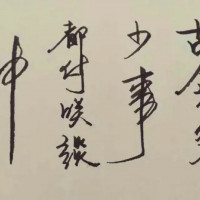 古今多
少事
都付咲談
中